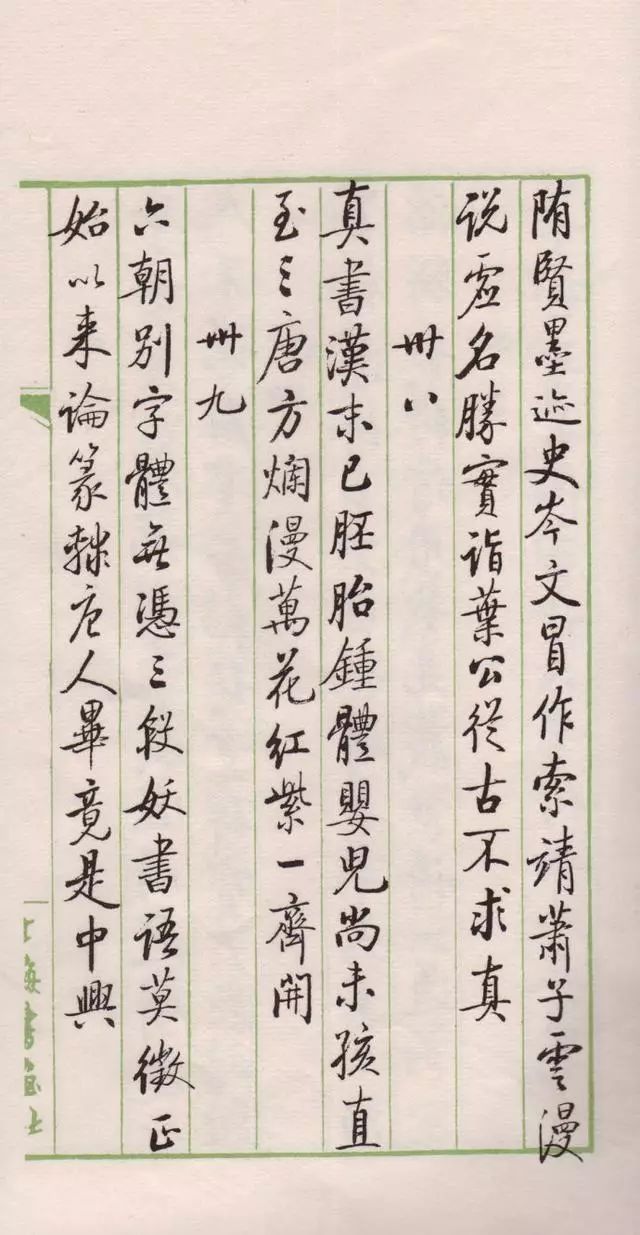 隋賢墨迹史岑文冒作索靖蕭子雲漫
说虚名勝實詣葉公從古不求真
卅八
真書漢末已胚胎鍾體嬰兒尚未孩直
至三唐方爛漫萬花红紫一齊開
卅九
六朝别字體無憑三段妖書語莫徵正
始以来論篆隸唐人畢竟是中興
上海書畫社